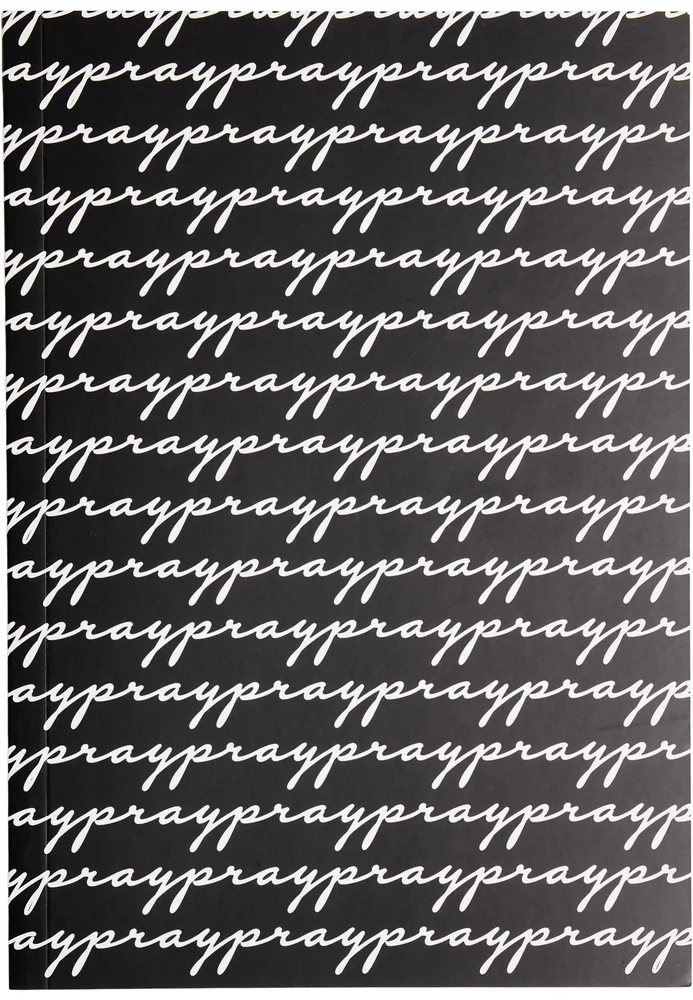 ayprayprayprayprayp
ypraypraypraypraypr
ayprayprayprayprayp
ypraypraypraypraypr
ayprayprayprayprayp
ypraypraypraypraypr
ayprayprayprayprayp
ypraypraypraypraypr
ayprayprayprayprayp
ypraypraypraypraypr
ayprayprayprayprayp
ypraypraypraypraypr
ayprayprayprayprayp
ypraypraypraypraypr
ayprayprayprayprayp